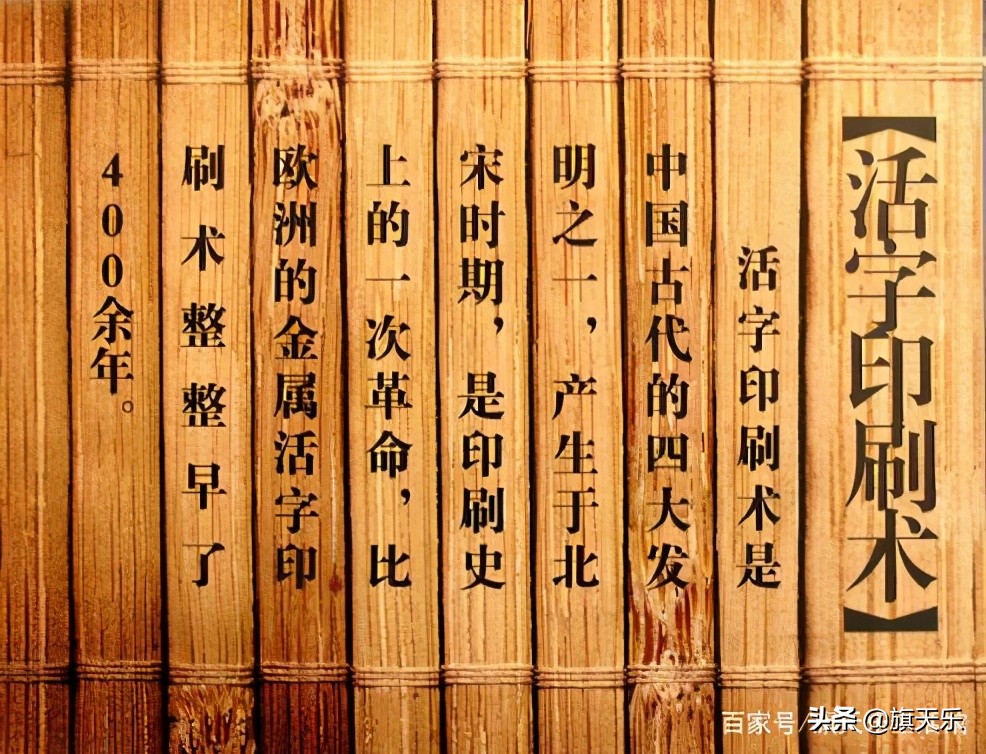 【活字印刷术】
活字印刷术是
中国古代的四大发
明之一，产生于北
宋时期，是印刷史
上的一次革命，比
欧洲的金属活字印
刷术整整早了
400余年。
百家号/
头条 @旗天乐